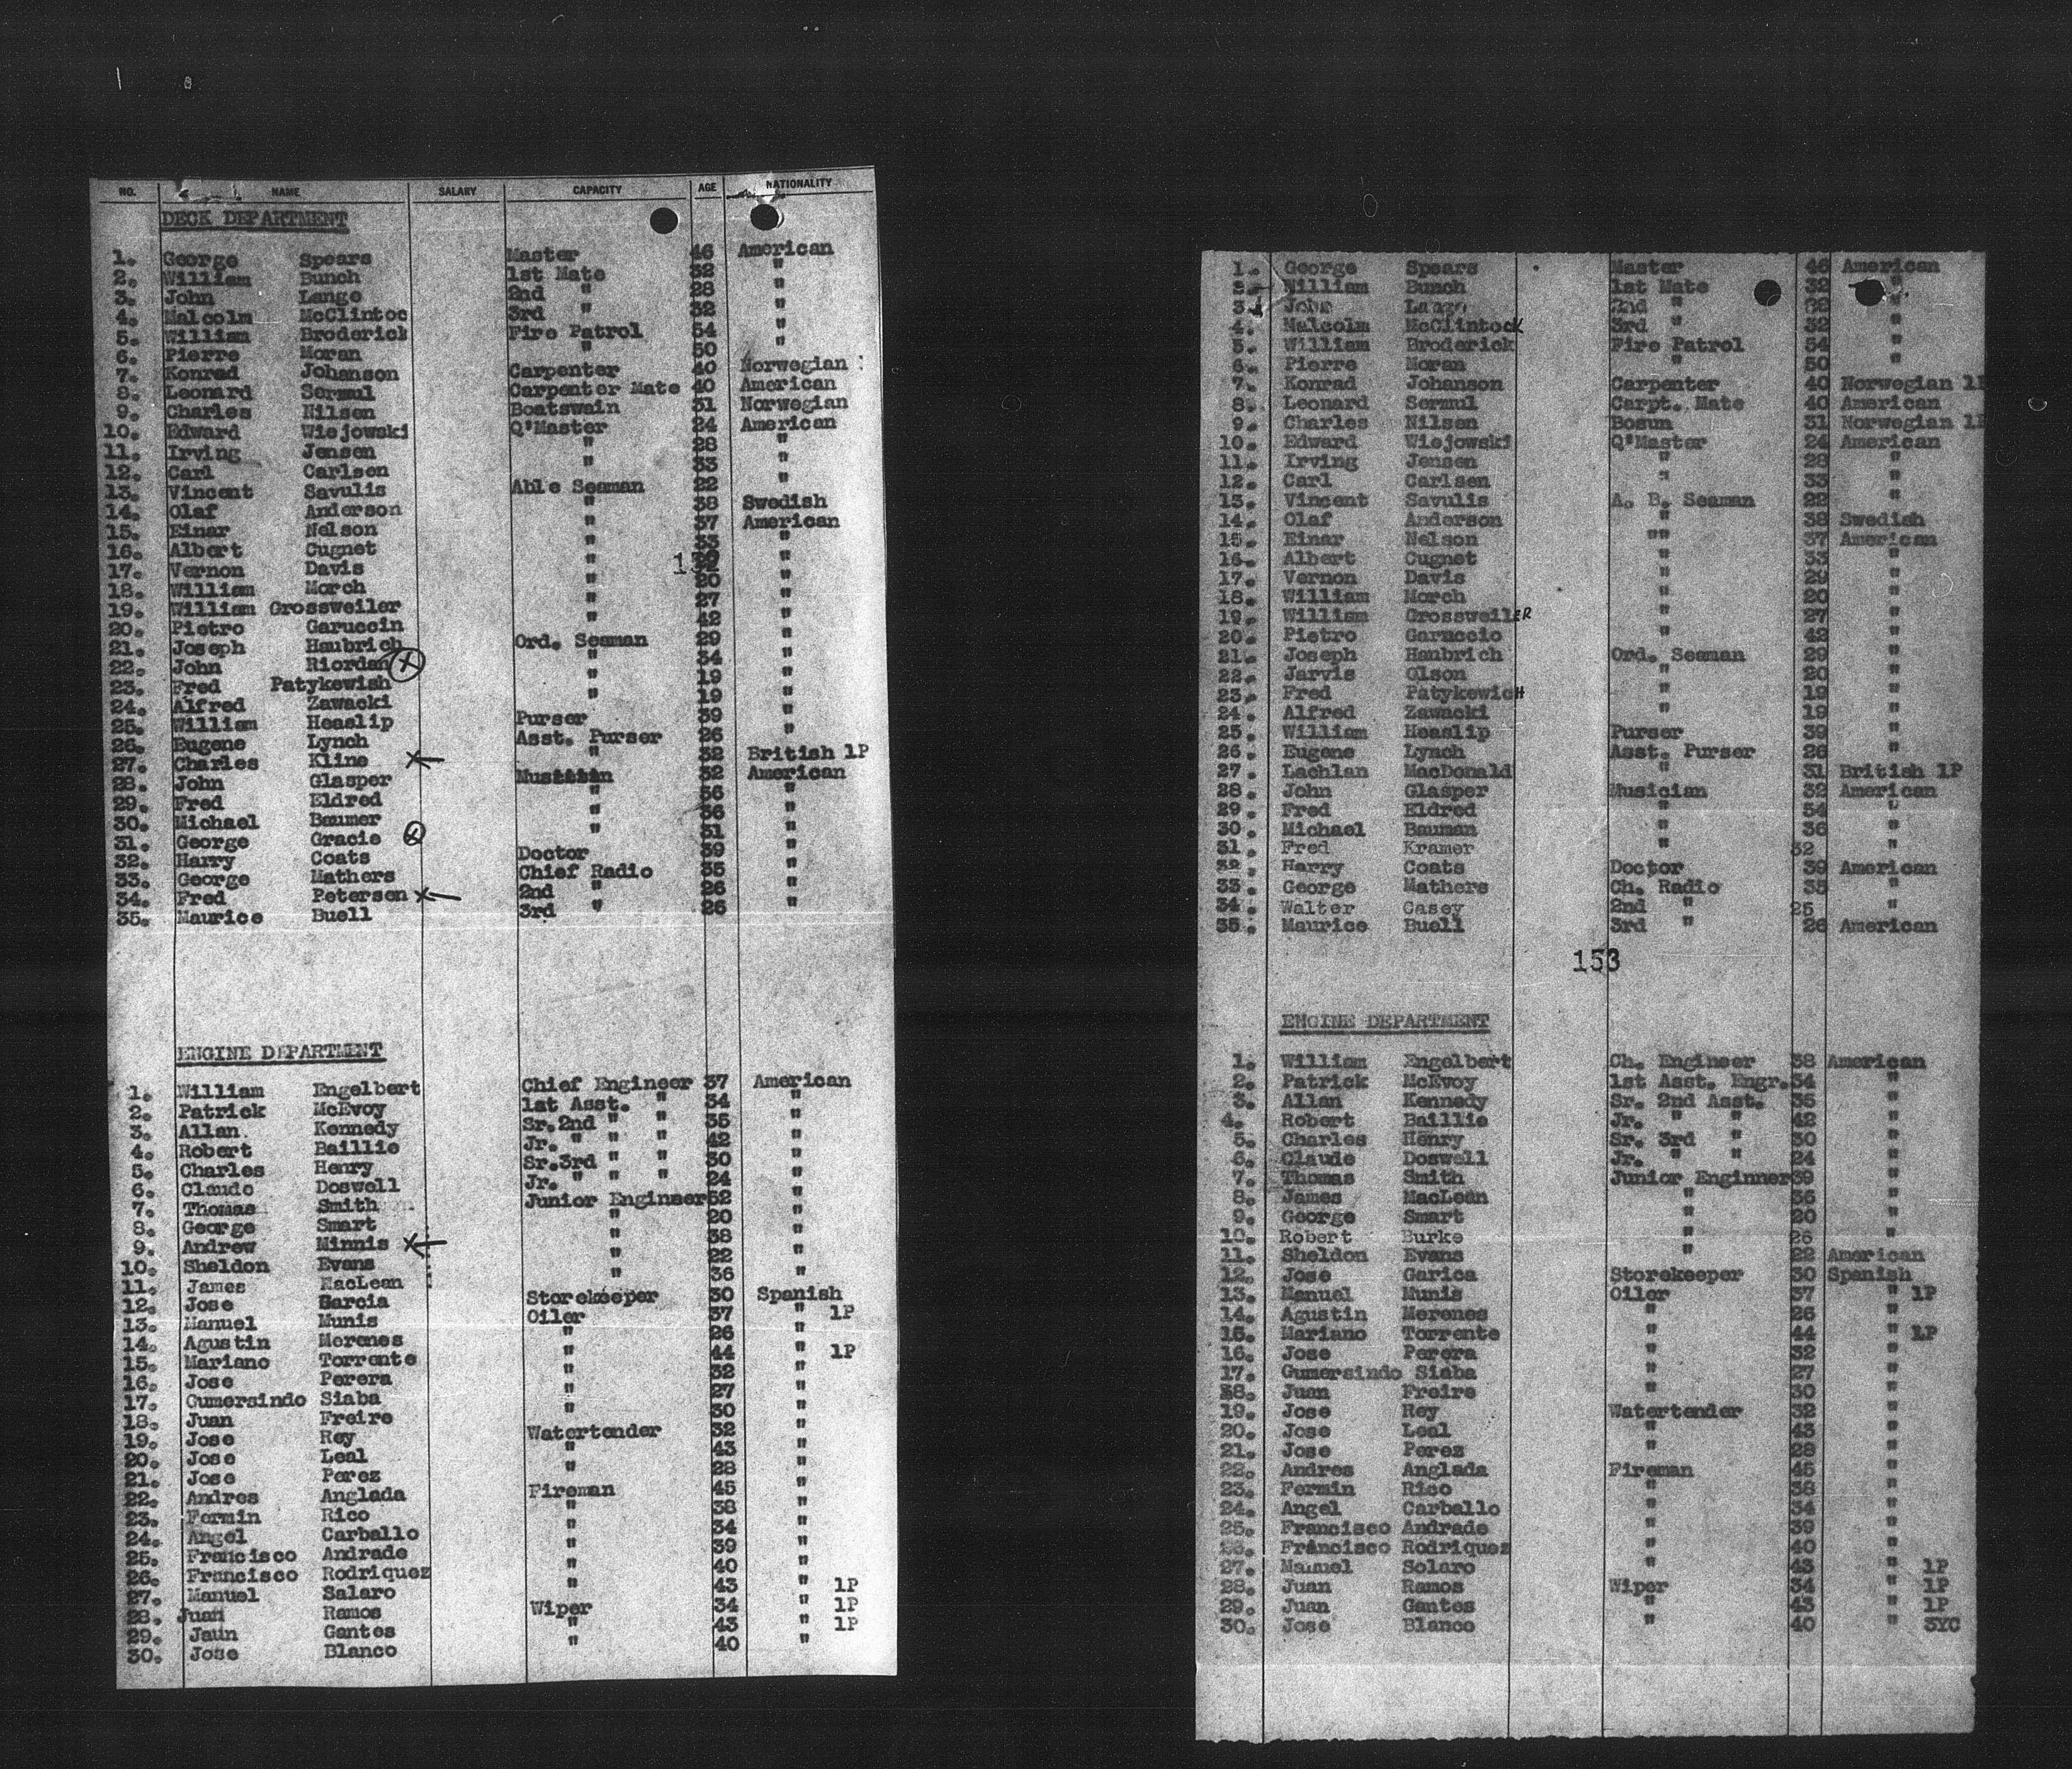 NO. NAME SALARY CAPACITY AGE NATIONALITY
DECK DEPARTMENT
1. George Spears Master 46 American
2. William Bunch 1st Mate 32 "
3. John Lange 2nd " 28 "
4. Malcolm McClintoc 3rd " 32 "
5. William Broderick Fire Patrol 54 "
6. Pierre Moran " 50 "
7. Konrad Johanson Carpenter 40 Norwegian
8. Leonard Sermul Carpenter Mate 40 American
9. Charles Nilsen Boatswain 31 Norwegian
10. Edward Wiejowski Q'Master 24 American
11. Irving Jensen " 28 "
12. Carl Carlsen " 33 "
13. Vincent Savulis Able Seaman 22 "
14. Olaf Anderson " 38 Swedish
15. Einar Nelson " 37 American
16. Albert Cugnet " 33 "
17. Vernon Davis " "
18. William Morch " 20 "
19. William Grossweiler " 27 "
20. Pietro Garuccin " 42 "
21. Joseph Haubrich Ord. Seaman 29 "
22. John Riordan X " 34 "
23. Fred Patykewish " 19 "
24. Alfred Zawacki " 19 "
25. William Heaslip Purser 39 "
26. Eugene Lynch Asst. Purser 26 "
27. Charles Kline X " 32 British 1P
28. John Glasper 32 American
29. Fred Eldred " 56 "
30. Michael Baumer " 36 "
31. George Gracie " 31 "
32. Harry Coats Doctor 39 "
33. George Mathers Chief Radio 35 "
34. Fred Petersen X 2nd " 26 "
35. Maurice Buell 3rd " 26 "
ENGINE DEPARTMENT
1. William Engelbert Chief Engineer 37 American
2. Patrick McEvoy 1st Asst. " 34 "
3. Allan Kennedy Sr.2nd " " 35 "
4. Robert Baillie Jr. " " " 42 "
5. Charles Henry Sr.3rd " " 30 "
6. Claude Doswell Jr. " " " 24 "
7. Thomas Smith Junior Engineer 52 "
8. George Smart " 20 "
9. Andrew Minnis X " 38 "
10. Sheldon Evans " 22 "
11. James MacLean " 36 "
12. Jose Garcia Storekeeper 30 Spanish
13. Manuel Munis Oiler 37 " 1P
14. Agustin Merenes " 26 "
15. Mariano Torrente " 44 " 1P
16. Jose Perera " 32 "
17. Gumersindo Siaba " 27 "
18. Juan Freire " 30 "
19. Jose Rey Watertender 32 "
20. Jose Leal " 43 "
21. Jose Perez " 28 "
22. Andres Anglada Fireman 45 "
23. Fermin Rico " 38 "
24. Angel Carballo " 34 "
25. Francisco Andrade " 39 "
26. Francisco Rodriquez " 40 "
27. Manuel Salaro " 43 " 1P
28. Juan Ramos Wiper 34 " 1P
29. Jaun Gantes " 43 " 1P
30. Jose Blanco " 40 "
1. George Spears Master 46 American
2. William Bunch 1st Mate 32 "
3. John Lange 2nd " 28 "
4. Malcolm McClintock 3rd " 32 "
5. William Broderick Fire Patrol 54 "
6. Pierre Moran " 50 "
7. Konrad Johanson Carpenter 40 Norwegian 1P
8. Leonard Sermul Carpt. Mate 40 American
9. Charles Nilsen Bosun 31 Norwegian 1P
10. Edward Wiejowski Q'Master 24 American
11. Irving Jensen " 28 "
12. Carl Carlsen " 33 "
13. Vincent Savulis A. B. Seaman 22 "
14. Olaf Anderson " 38 Swedish
15. Einar Nelson "" 37 American
16. Albert Cugnet " 33 "
17. Vernon Davis " 29 "
18. William Morch " 20 "
19. William GrossweilER " 27 "
20. Pietro Garuccio " 42 "
21. Joseph Hanbrich Ord. Seaman 29 "
22. Jarvis Olson " 20 "
23. Fred PatykewicH " 19 "
24. Alfred Zawacki " 19 "
25. William Heaslip Purser 39 "
26. Eugene Lynch Asst. Purser 26 "
27. Lachlan MacDonald " 31 British 1P
28. John Glasper Musician 32 American
29. Fred Eldred " 54 "
30. Michael Bauman " 36 "
31. Fred Kramer " 32 "
32. Harry Coats Doctor 39 American
33. George Mathers Ch. Radio 35 "
34. Walter Casey 2nd " 25 "
35. Maurice Buell 3rd " 26 American
153
ENGINE DEPARTMENT
1. William Engelbert Ch. Engineer 38 American
2. Patrick McEvoy 1st Asst. Engr. 34 "
3. Allan Kennedy Sr. 2nd Asst. 35 "
4. Robert Baillie Jr. " " 42 "
5. Charles Henry Sr. 3rd " 30 "
6. Claude Doswell Jr. " " 24 "
7. Thomas Smith Junior Enginner 39 "
8. James MacLean " 36 "
9. George Smart " 20 "
10. Robert Burke " 26 "
11. Sheldon Evans " 22 American
12. Jose Garica Storekeeper 30 Spanish
13. Manuel Munis Oiler 37 " 1P
14. Agustin Merenes " 26 "
15. Mariano Torrente " 44 " 1P
16. Jose Perera " 32 "
17. Gumersindo Siaba " 27 "
18. Juan Freire " 30 "
19. Jose Rey Watertender 32 "
20. Jose Leal " 43 "
21. Jose Perez " 28 "
22. Andres Anglada Fireman 45 "
23. Fermin Rico " 38 "
24. Angel Carballo " 34 "
25. Francisco Andrade " 39 "
26. Francisco Rodriquez " 40 "
27. Manuel Solaro " 43 " 1P
28. Juan Ramos Wiper 34 " 1P
29. Juan Gantes " 43 " 1P
30. Jose Blanco " 40 " 3YC